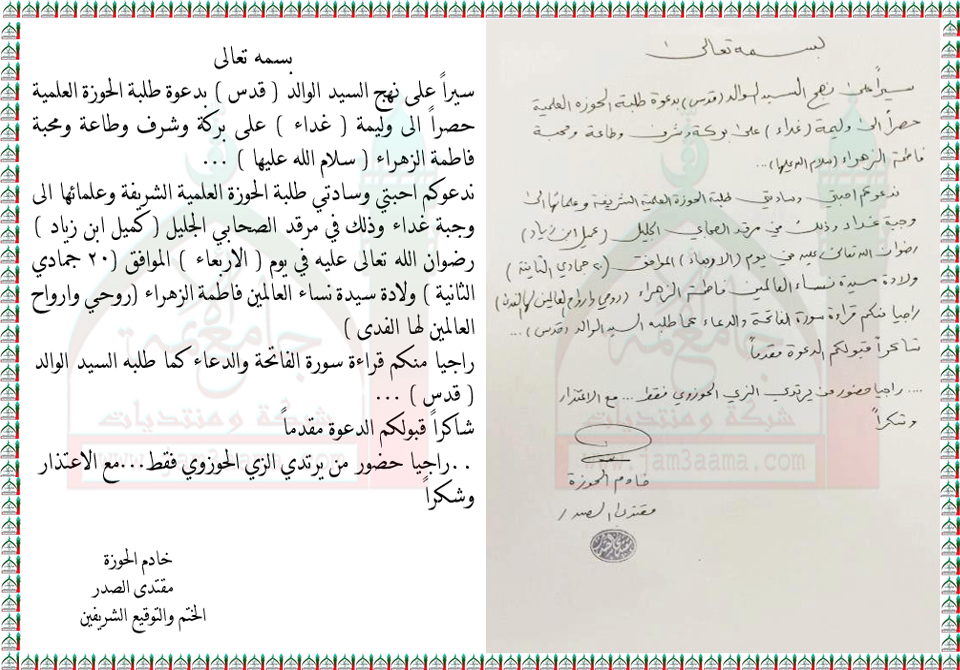 بسمه تعالى
سيراً على نهج السيد الوالد ( قدس ) بدعوة طلبة الحوزة العلمية
حصراً الى وليمة ( غداء ) على بركة وشرف وطاعة ومحبة
فاطمة الزهراء ( سلام الله عليها ) ...
ندعوكم احبتي وسادتي طلبة الحوزة العلمية الشريفة وعلمائها الى
وجبة غداء وذلك في مرقد الصحابي الجليل ( كميل ابن زياد )
رضوان الله تعالى عليه في يوم ( الاربعاء ) الموافق (٢٠ جمادي
الثانية ) ولادة سيدة نساء العالمين فاطمة الزهراء (روحي وارواح
العالمين لها الفدى )
راجيا منكم قراءة سورة الفاتحة والدعاء كما طلبه السيد الوالد
( قدس ) ...
شاكراً قبولكم الدعوة مقدماً
..راجيا حضور من يرتدي الزي الحوزوي فقط...مع الاعتذار
وشكراً
خادم الحوزة
مقتدى الصدر
الختم والتوقيع الشريفين
بسمه تعالى
سيراً على نهج السيد الوالد (قدس) بدعوة طلبة الحوزة العلمية
حصراً الى وليمة (غداء) على بركة وشرف وطاعة ومحبة
فاطمة الزهراء (سلام الله عليها)...
ندعوكم احبتي وسادتي طلبة الحوزة العلمية الشريفة وعلمائها الى
وجبة غداء وذلك في مرقد الصحابي الجليل (كميل ابن زياد)
رضوان الله تعالى عليه في يوم (الاربعاء) الموافق (٢٠ جمادي الثانية)
ولادة سيدة نساء العالمين فاطمة الزهراء (روحي وارواح العالمين لها الفدى)
راجيا منكم قراءة سورة الفاتحة والدعاء كما طلبه السيد الوالد (قدس)...
شاكراً قبولكم الدعوة مقدماً
.... راجيا حضور من يرتدي الزي الحوزوي فقط... مع الاعتذار
وشكراً
خادم الحوزة
مقتدى الصدر
جامع أئمة
شبكة ومنتديات
www.jam3aama.com